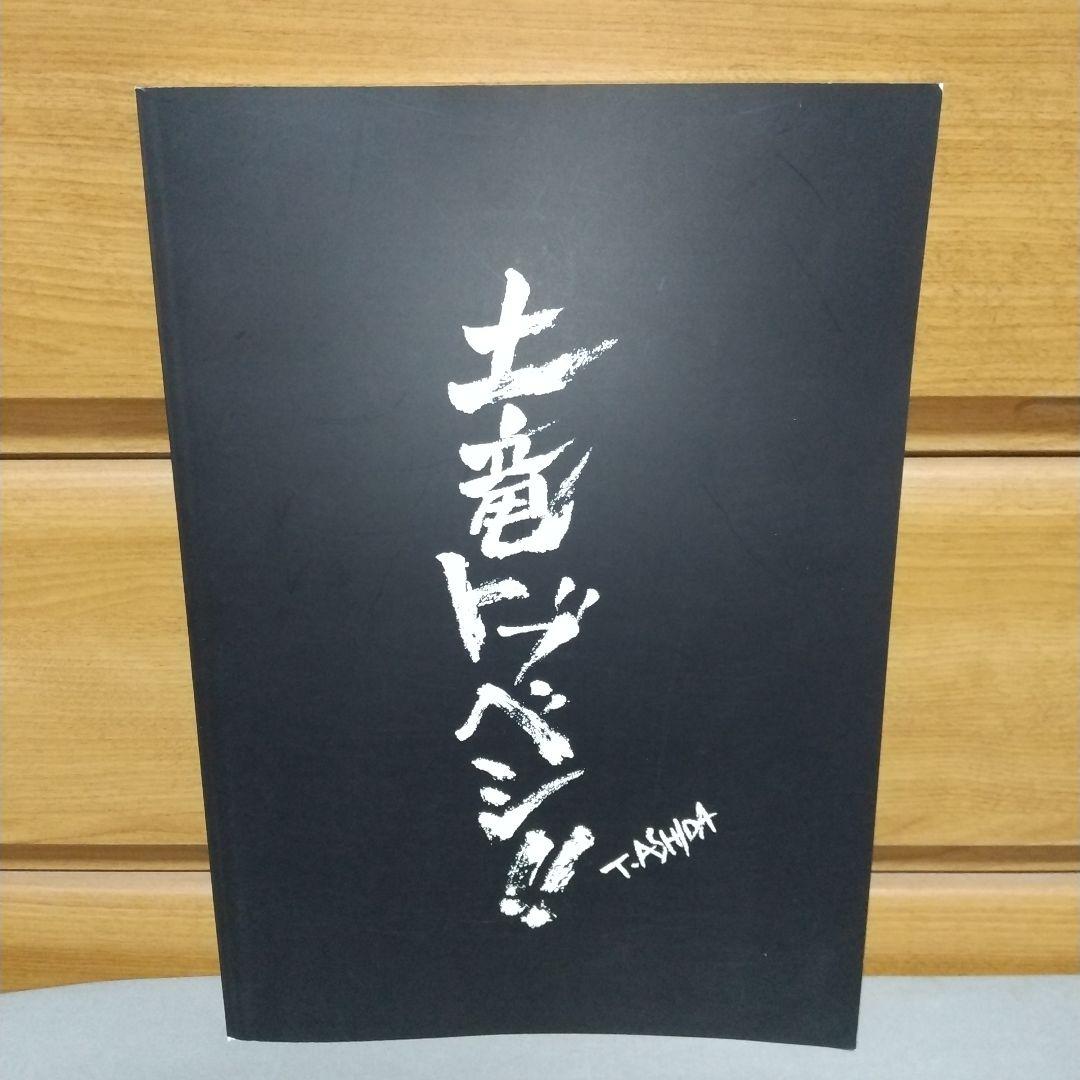 土竜トブベシ!!
T.ASHIDA